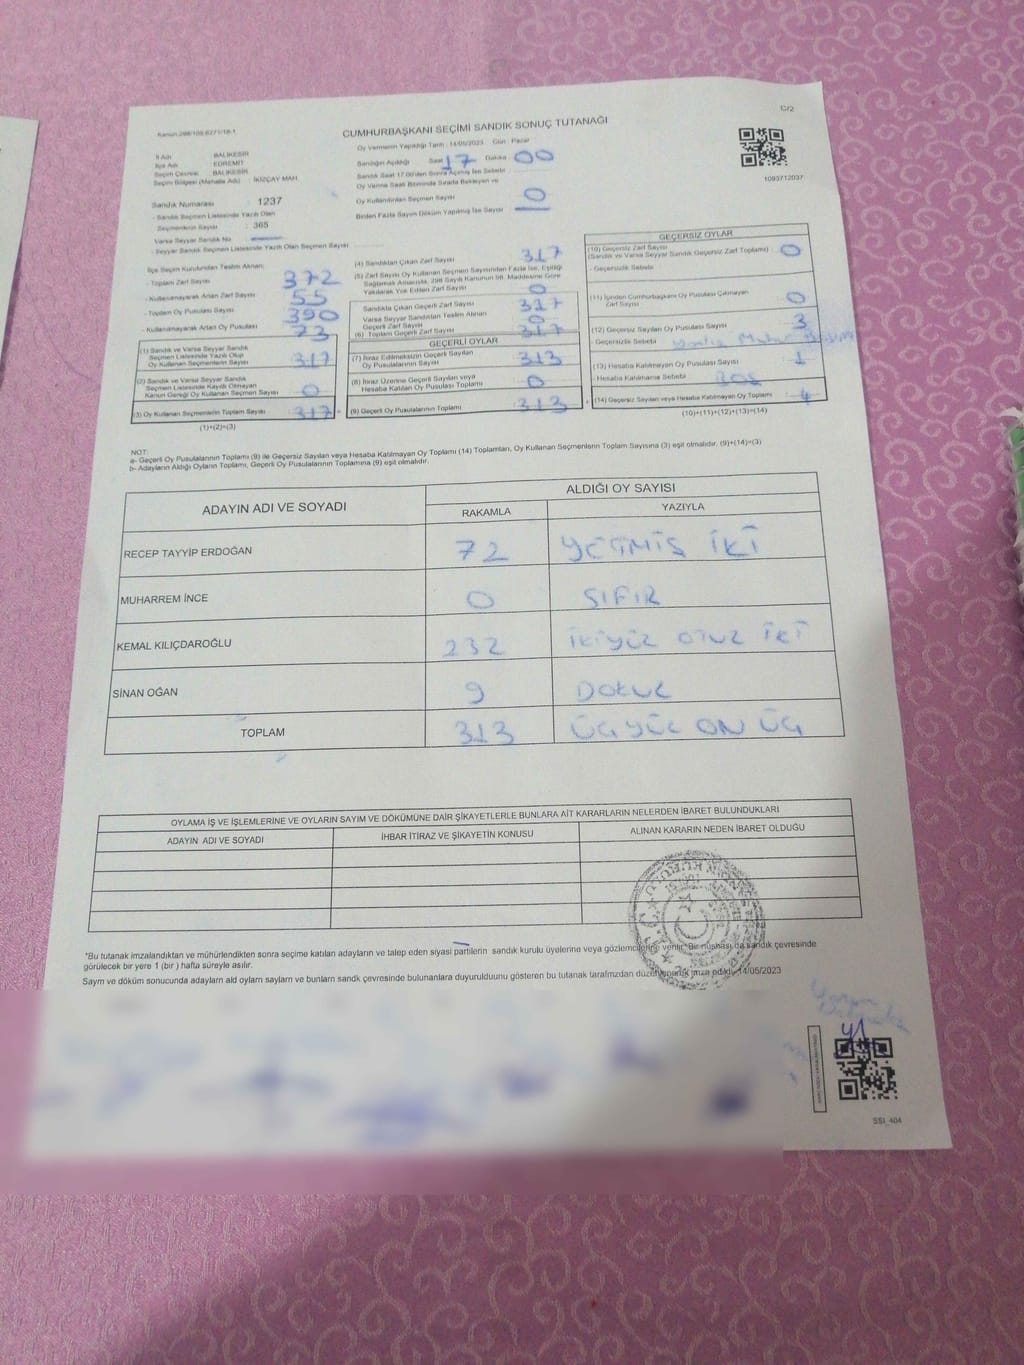 C/2
Kanun:298/105,6271/18-1
CUMHURBAŞKANI SEÇİMİ SANDIK SONUÇ TUTANAĞI
1093712037
İl Adı : BALIKESİR
İlçe Adı : EDREMİT
Seçim Çevresi : BALIKESİR
Seçim Bölgesi (Mahalle Adı) : İKİZÇAY MAH.
Sandık Numarası : 1237
- Sandık Seçmen Listesinde Yazılı Olan
Seçmenlerin Sayısı : 365
Varsa Seyyar Sandık No
- Seyyar Sandık Seçmen Listesinde Yazılı Olan Seçmen Sayısı
Oy Vermenin Yapıldığı Tarih : 14/05/2023 Gün : Pazar
Sandığın Açıldığı Saat 17 Dakika 00
Sandık Saat 17:00'den Sonra Açılmış İse Sebebi
Oy Verme Saati Bitiminde Sırada Bekleyen ve
Oy Kullandırılan Seçmen Sayısı 0
Birden Fazla Sayım Döküm Yapılmış İse Sayısı
İlçe Seçim Kurulundan Teslim Alınan;
- Toplam Zarf Sayısı : 372
- Kullanılmayarak Artan Zarf Sayısı : 55
- Toplam Oy Pusulası Sayısı : 390
- Kullanılmayarak Artan Oy Pusulası : 73
(1) Sandık ve Varsa Seyyar Sandık
Seçmen Listesinde Yazılı Olup
Oy Kullanan Seçmenlerin Sayısı : 317
(2) Sandık ve Varsa Seyyar Sandık
Seçmen Listesinde Kaydı Olmayan
Kanun Gereği Oy Kullanan Seçmen Sayısı : 0
(3) Oy Kullanan Seçmenlerin Toplam Sayısı : 317
(1)+(2)=(3)
(4) Sandıktan Çıkan Zarf Sayısı : 317
(5) Zarf Sayısı Oy Kullanan Seçmen Sayısından Fazla İse, Eşitliği
Sağlamak Amacıyla, 298 Sayılı Kanunun 98. Maddesine Göre
Yakılarak Yok Edilen Zarf Sayısı : 0
Sandıkta Çıkan Geçerli Zarf Sayısı : 317
Varsa Seyyar Sandıktan Teslim Alınan
Geçerli Zarf Sayısı : 0
(6) Toplam Geçerli Zarf Sayısı : 317
GEÇERLİ OYLAR
(7) İtiraz Edilmeksizin Geçerli Sayılan
Oy Pusulalarının Sayısı : 313
(8) İtiraz Üzerine Geçerli Sayılan veya
Hesaba Katılan Oy Pusulası Toplamı : 0
(9) Geçerli Oy Pusulalarının Toplamı : 313
GEÇERSİZ OYLAR
(10) Geçersiz Zarf Sayısı
(Sandık ve Varsa Seyyar Sandık Geçersiz Zarf Toplamı) : 0
- Geçersizlik Sebebi
(11) İçinden Cumhurbaşkanı Oy Pusulası Çıkmayan
Zarf Sayısı : 0
(12) Geçersiz Sayılan Oy Pusulası Sayısı : 3
- Geçersizlik Sebebi
(13) Hesaba Katılmayan Oy Pusulası Sayısı : 1
- Hesaba Katılmama Sebebi BOŞ
(14) Geçersiz Sayılan veya Hesaba Katılmayan Oy Toplamı : 4
(10)+(11)+(12)+(13)=(14)
NOT:
a- Geçerli Oy Pusulalarının Toplamı (9) ile Geçersiz Sayılan veya Hesaba Katılmayan Oy Toplamı (14) Toplamları, Oy Kullanan Seçmenlerin Toplam Sayısına (3) eşit olmalıdır. (9)+(14)=(3)
b- Adayların Aldığı Oyların Toplamı, Geçerli Oy Pusulalarının Toplamına (9) eşit olmalıdır.
ADAYIN ADI VE SOYADI
ALDIĞI OY SAYISI
RAKAMLA YAZIYLA
RECEP TAYYİP ERDOĞAN 72 YETMİŞ İKİ
MUHARREM İNCE 0 SIFIR
KEMAL KILIÇDAROĞLU 232 İKİYÜZ OTUZ İKİ
SİNAN OĞAN 9 DOKUZ
TOPLAM 313 ÜÇYÜZ ON ÜÇ
OYLAMA İŞ VE İŞLEMLERİNE VE OYLARIN SAYIM VE DÖKÜMÜNE DAİR ŞİKAYETLERLE BUNLARA AİT KARARLARIN NELERDEN İBARET BULUNDUKLARI
ADAYIN ADI VE SOYADI İHBAR İTİRAZ VE ŞİKAYETİN KONUSU ALINAN KARARIN NEDEN İBARET OLDUĞU
*Bu tutanak imzalandıktan ve mühürlendikten sonra seçime katılan adayların ve talep eden siyasi partilerin sandık kurulu üyelerine veya gözlemcilerine verilir.*Bir nüshası da sandık çevresinde
görülecek bir yere 1 (bir ) hafta süreyle asılır.
Sayım ve döküm sonucunda adayların aldı oyların sayıları ve bunların sandk çevresinde bulunanlara duyurulduunu gösteren bu tutanak tarafımzdan düzenlenerek imza edildi. 14/05/2023
SSİ_404